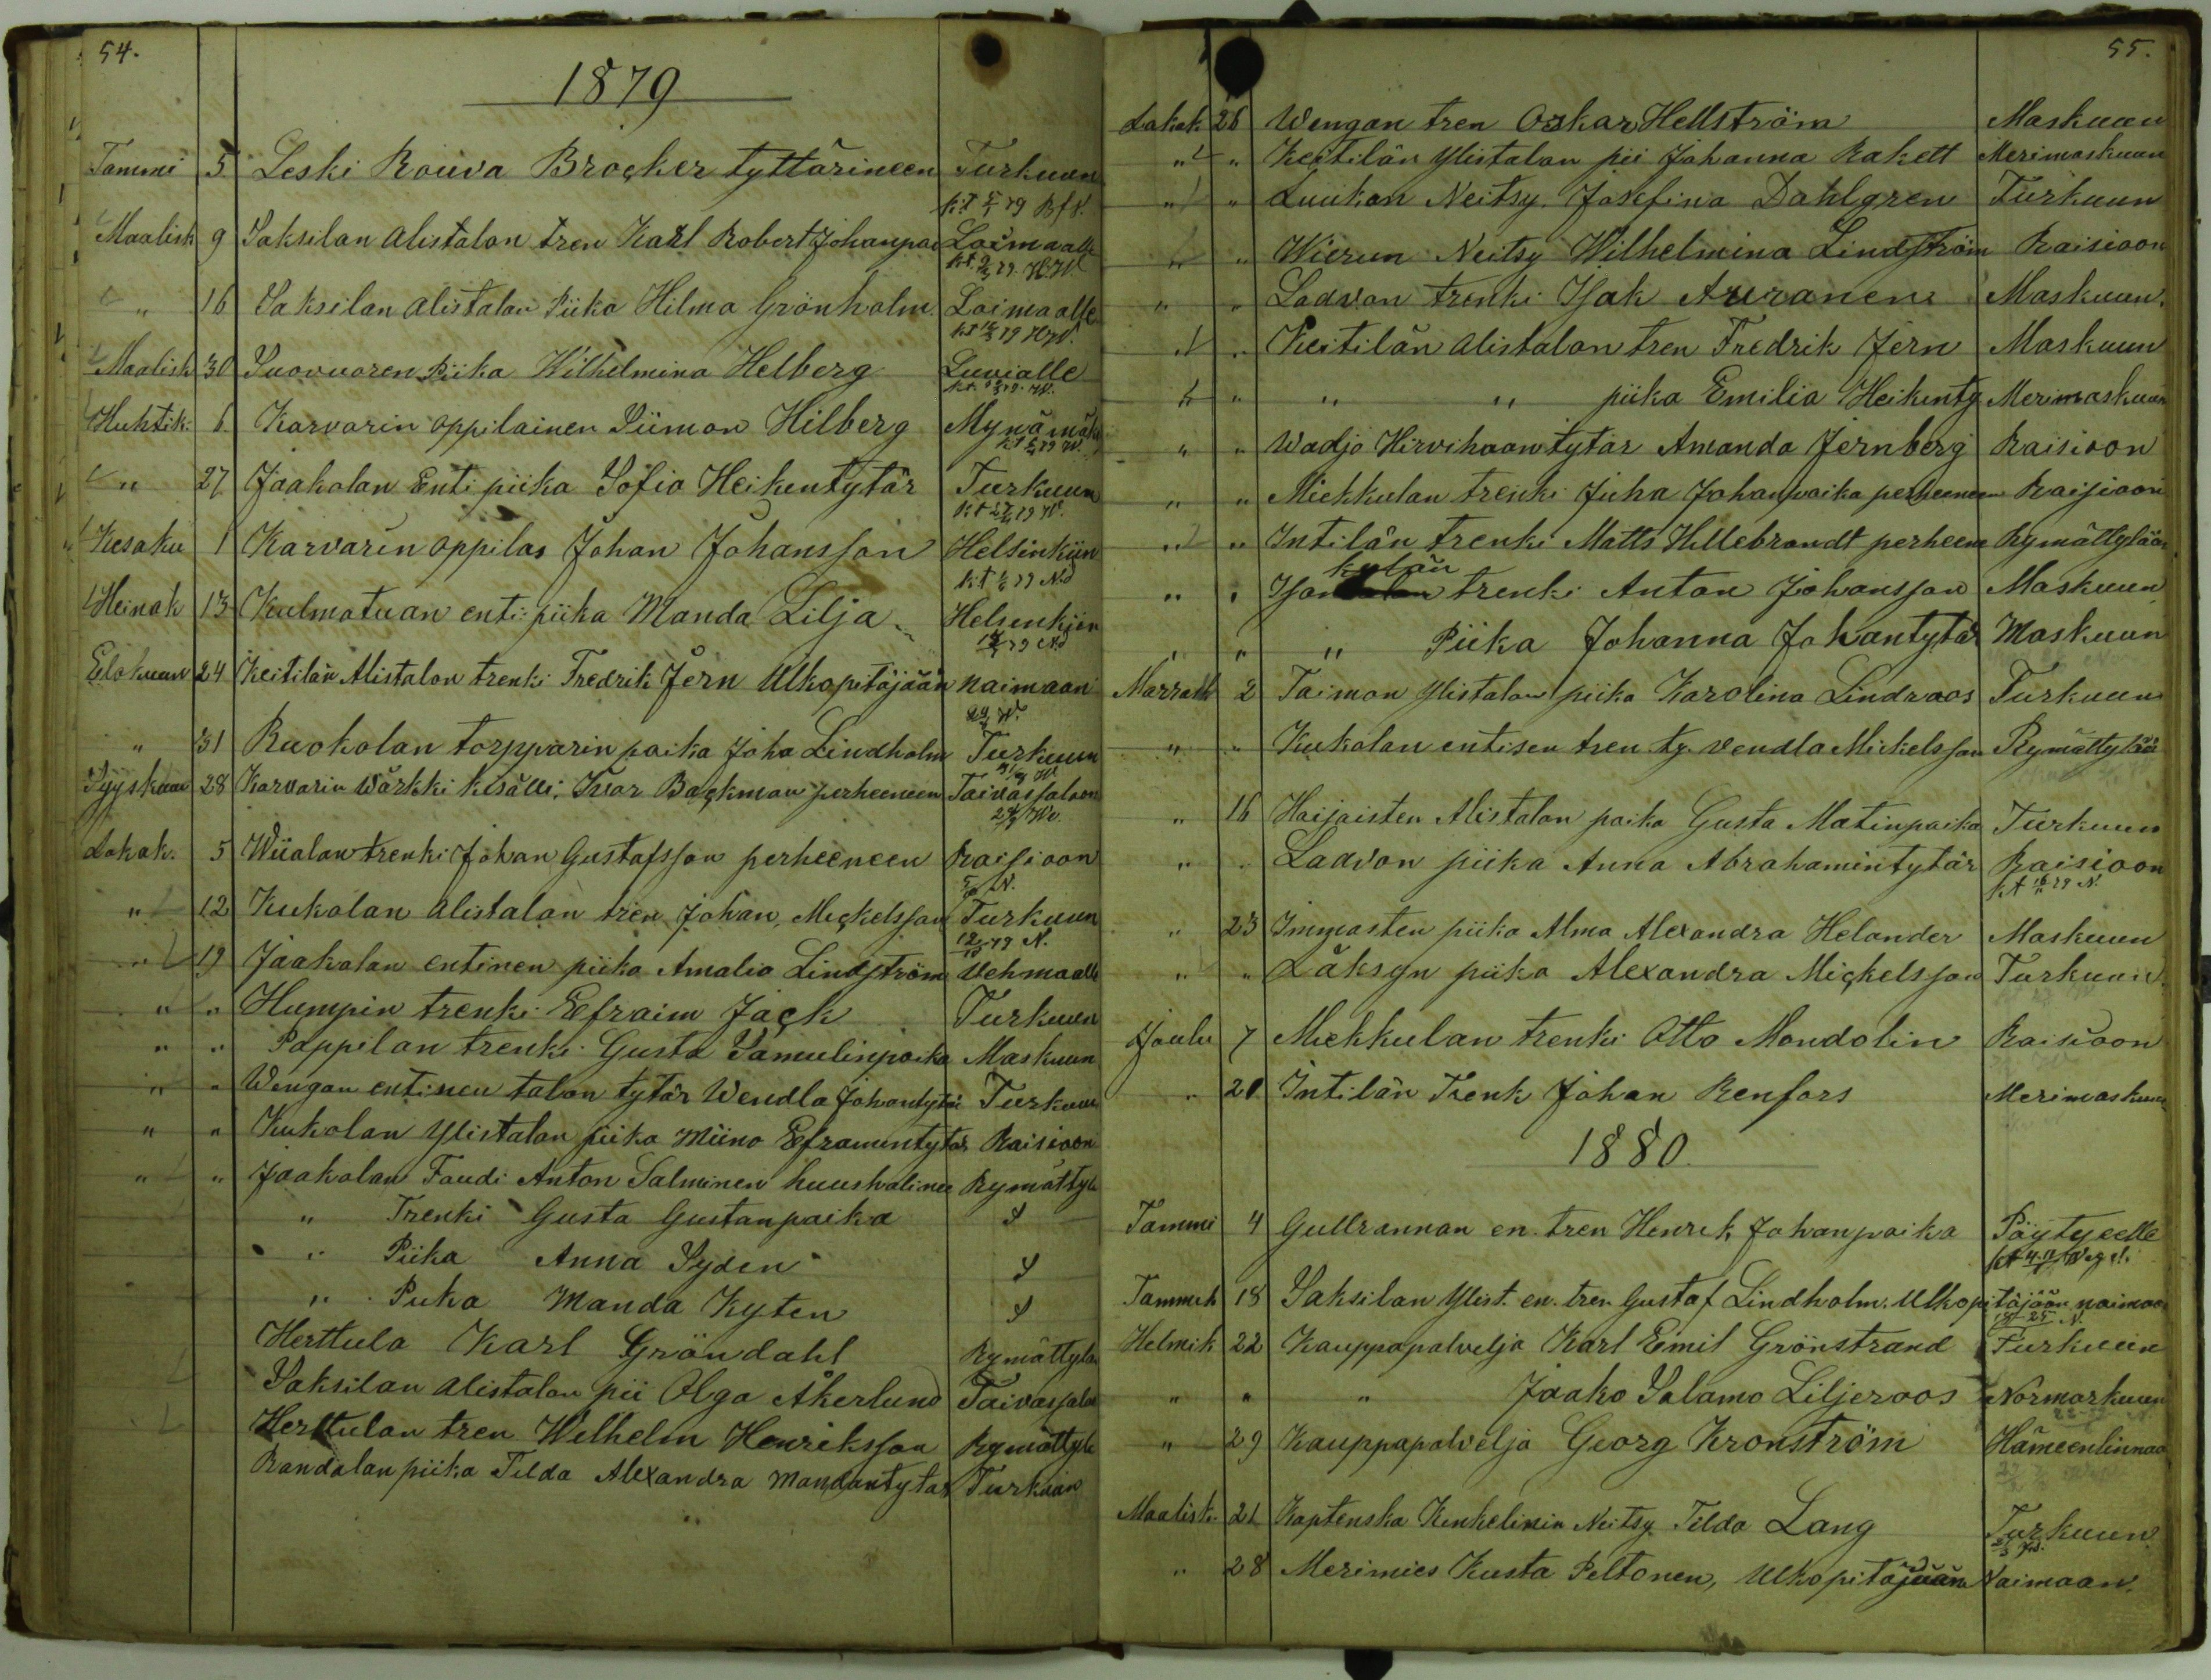 54.
1879
Tammi 5 Leski Rouva Brocker tyttärineen Turkuun
Maalisk 9 Saksilan alistalon tren Karl Robert Johanpoi Loimaalle
" 16 Saksilan alistalon Piika Hilma Grönholm. Loimaalle
Maalisk 30 Suovuoren Piika Wilhelmina Helberg Luvialle
Huhtik. 6 Karvarin oppilainen Siimon Hilberg Mynämäk
" 27 Jaakolan Enti piika Sofia Heikentytär Turkuun
Kesäku 1 Karvarin oppilas Johan Johansson Helsinkiin
Heinäk 13 Kulmatuan enti: piika Manda Lilja Helsenkiin
Elokuun 24 Keitilän Alistalon trenki Fredrik Jern Ulkopitäjään naimaan
" 31 Ruokolan torpparin poika Joha Lindholm Turkuun
Syyskuu 28 Karvarin Wärkki kisälli. Ivar Backman perheeneen Taivassaloon
Lokak. 5 Wiialan trenki Johan Gustafsson perheeneen Raisioon
" 12 Kukolan alistalon tren Johan, Mickelsson Turkuun
12/10 79 N.
" 19 Jaakolan entinen piika Amalia Lindström Vehmaalle
" " Humpin trenki Efraim Jack Turkuun
" " Pappilan trenki Gusta Samulinpoika Maskuun
" " Wengan entinen talon tytär Wendla Johantytär Turkuun
" " Kukolan Ylistalon piika Miina Eframintytär Raisioon
" " Jaakolan Foudi Anton Salminen huushalinee Rymättyle
" Trenki Gusta Gustanpoika
" Piika Anna Syden
" Piika Manda Kyten
Herttula Karl Gröndahl Rymättylä
Saksilan alistalon pii Olga Åkerlund Taivassalo
Herttulan tren Wilhelm Henriksson Rymättyle
Randalan piika Tilda Alexandra Mandantytär Turkuun
55.
Lokak 26 Wengan tren Oskar Hellström Maskuun
" " Keitilän Ylistalon pii Johanna Rakett Merimaskuun
" " Luukon Neitsy. Josefina Dahlgren Turkuun
" " Wierun Neitsy Wilhelmina Lindström Raisioon
" " Ladvon trenki Isak Auranen Maskuun.
" " Keitilän alistalon tren Fredrik Jern Maskuun
" " " " piika Emilia Heikenty Merimaskuun
" " Wadjo Hirvihaan tytär Amanda Jernberg Raisioon
" " Miekkulan trenki Juha Johanpoika perheeneen Raisioon
" " Intilän trenki Matts Hillebrandt perheene Rymättylään
kylän
" " Ison trenki Anton Johansson Maskuun
" " " Piika Johanna Johantytär Maskuun
Marrask 2 Taimon Ylistalon piika Karolina Lindroos Turkuun
" " Kukolan entisen tren ty. Vendla Mickelsson Rymättylää
" 16 Haijaisten Alistalon poika Gusta Matinpoika Turkuun
" " Ladvon piika Anna Abrahamintytär Raisioon
" 23 Immasten piika Alma Alexandra Helander Maskuun
" " Läksyn piika Alexandra Mickelsson Turkuun
Joulu 7 Miekkulan trenki Otto Mandolin Raisioon
" 20 Intilän Trenk Johan Renfors Merimaskuun
1880.
Tammi 4 Gullrannan en. tren Henrik Johanpoika Pöytyeelle
Tammik 18 Saksilan Ylist. en. tren Gustaf Lindholm. Ulkopitäjään naimaa
Helmik 22 Kauppapalvelja Karl Emil Grönstrand Turkuun
" " " Jaako Salamo Liljeroos Normarkuun
" 29 Kauppapalvelja Georg Kronström Hämeenlinnaa
Maalisk. 21 Kaptenska Kenkelinin Neitsy Tilda Lang Turkuun
" 28 Merimies Kusta Peltonen, Ulkopitäjään Naimaan.